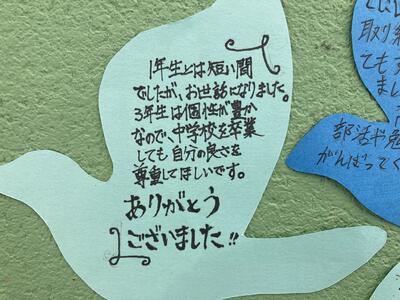 1年生とは短い間
でしたが、お世話になりました。
3年生は個性が豊か
なので中学校を卒業
しても自分の良さを
尊重してほしいです。
ありがとう
ございました!!
取り
ても
まし
部活や勉
がんばってく